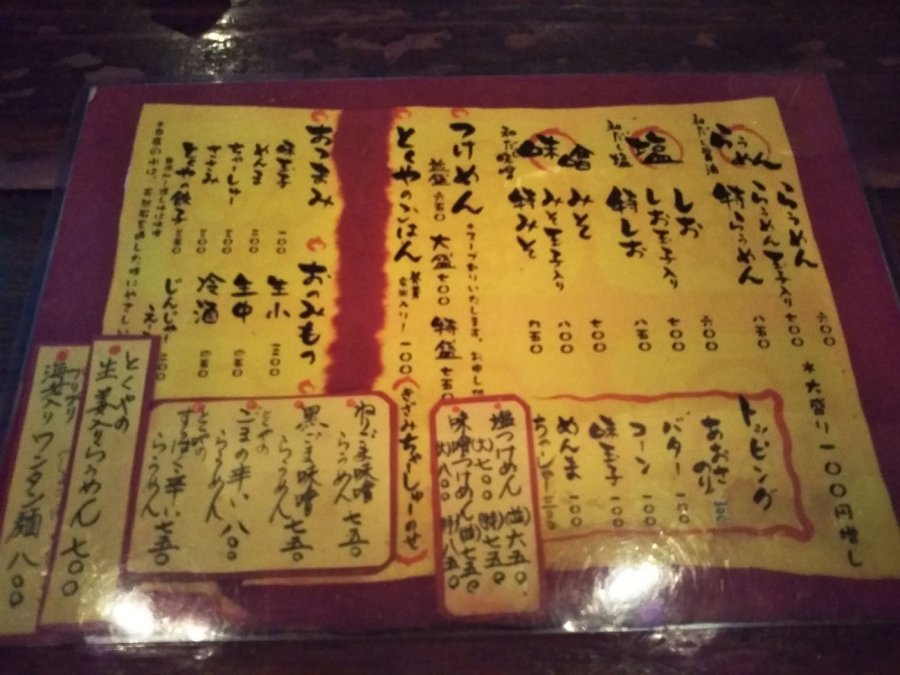 らぅめん
和だし醤油
らぅめん 六〇〇
らぅめん玉子入り 七〇〇
特らぅめん 八五〇
＊大盛り一〇〇円増し
塩
和だし塩
しお 六〇〇
しお玉子入り 七〇〇
特しお 八五〇
味噌
和だし味噌
みそ 七〇〇
みそ玉子入り 八〇〇
特みそ 九五〇
トッピング
あおさのり 100
バター 一〇〇
コーン 一〇〇
味玉子 一〇〇
めんま 一〇〇
ちゃーしゅー 三〇〇
つけめん
並盛 六五〇 大盛 七〇〇 特盛 七五〇
塩つけめん (並)六五〇
(大)七〇〇 (特)七五〇
味噌つけめん (並)七五〇
(大)八〇〇 (特)八五〇
とくやのごはん
一〇〇
きざみちゃーしゅーのせ
おつまみ
味玉子 一〇〇
めんま 三〇〇
ちゃーしゅー 三〇〇
きざみ 三〇〇
とくやの餃子 三五〇
おのみもの
生小 三〇〇
生中 四五〇
冷酒 四五〇
じんじゃーえーる 二〇〇
ねりごま味噌
らぅめん 七五〇
黒ごま味噌
らぅめん 七五〇
とくやの
ごまの辛い
らぅめん 八〇〇
とくやの
すっぱ辛い
らぅめん 七五〇
とくやの
生姜入りらぅめん 七〇〇
プリプリ
海老入りワンタン麺 八〇〇